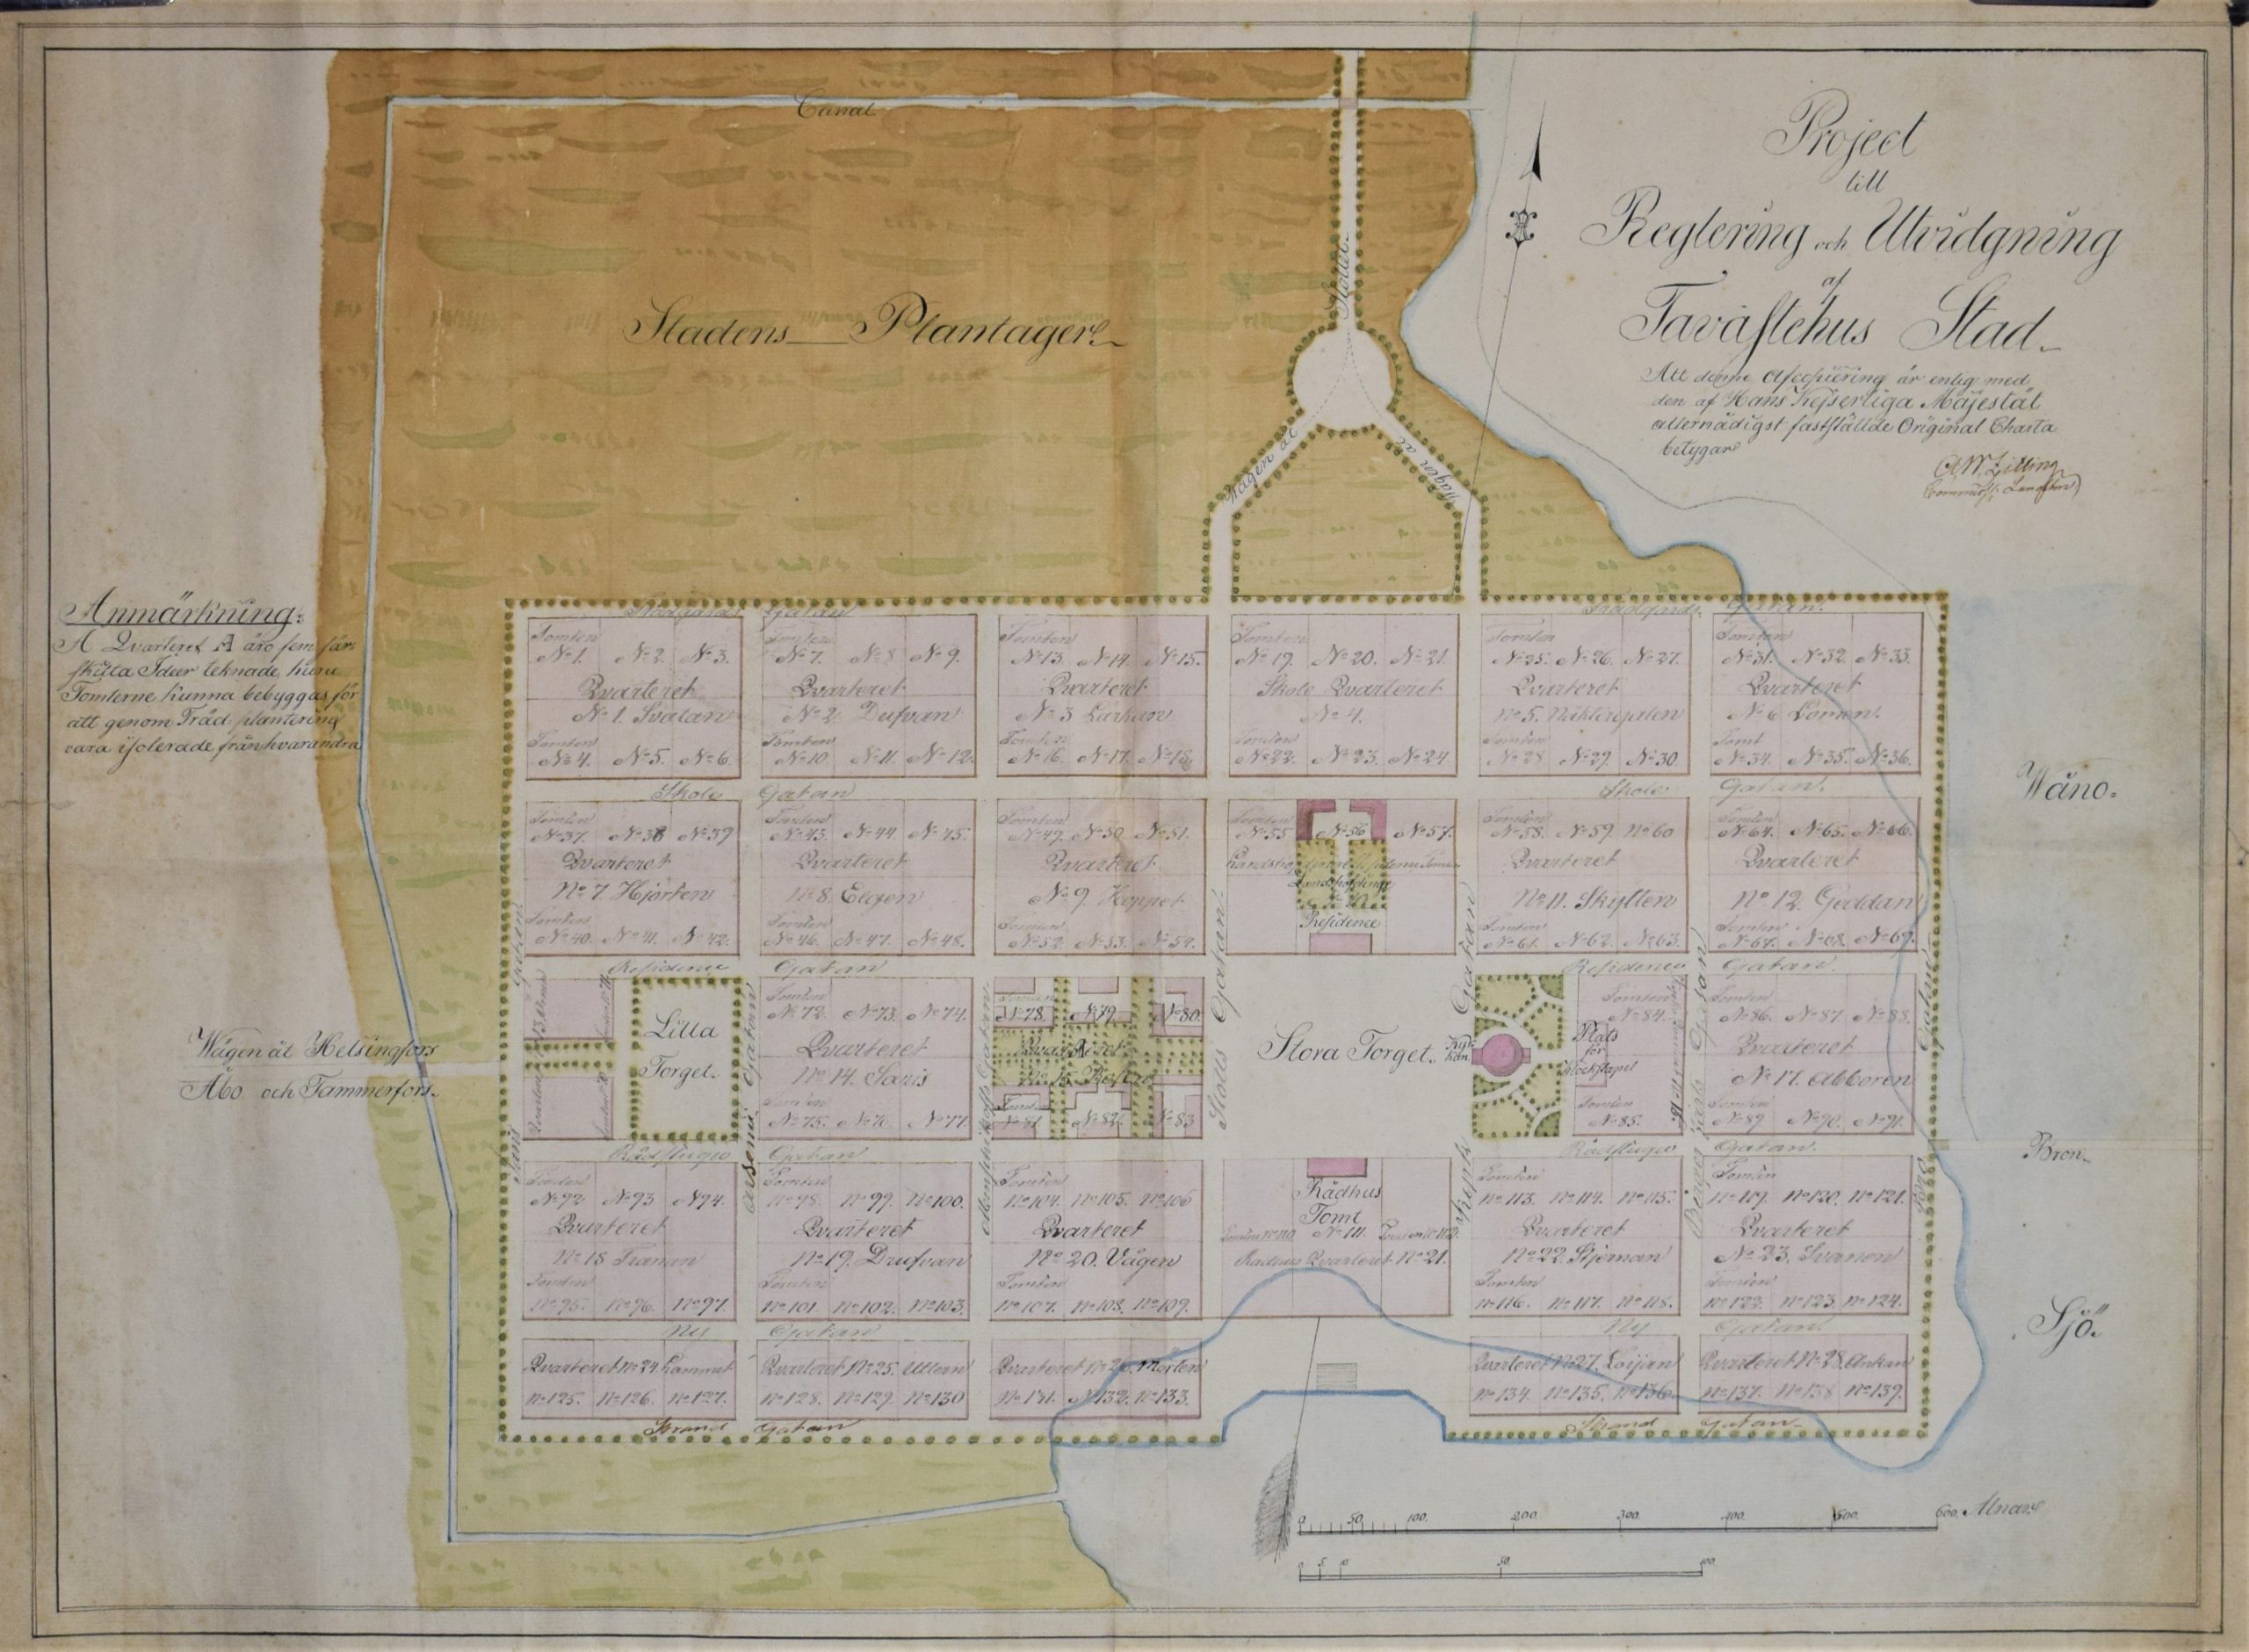 Canal
Project
till
Reglering och Utvidgning
af
Tavastehus Stad
Att denne Afcopiering är enlig med
den af Hans Kejserliga Majestät
allernådigst fastställde Original Charta
betygar
Stadens Plantager
Slottet
Vägen åt
Vägen åt
Anmärkning:
A Qvarteret A äro fem sär-
skilta Ideer teknade, huru
Tomterne kunna bebyggas för
att genom Träd plantering
vara isolerade från hvarandra
Gatan
Trädgårds Gatan.
Tomten
N:o 1. N:o 2. N:o 3.
Qvarteret
N:o 1. Svalan
Tomten
N:o 4. N:o 5. N:o 6.
Tomten
N:o 7. N:o 8 N:o 9.
Qvarteret
N:o 2. Dufvan
Tomten
N:o 10. N:o 11. N:o 12.
Tomten
N:o 13. N:o 14. N:o 15.
Qvarteret
N:o 3 Lärkan
Tomten
N:o 16. N:o 17. N:o 18.
Tomten
N:o 19. N:o 20. N:o 21.
Skole Qvarteret
N:o 4.
Tomten
N:o 22. N:o 23. N:o 24
Tomten
N:o 25. N:o 26. N:o 27.
Qvarteret
N:o 5. Näktergalen
Tomten
N:o 28 N:o 29. N:o 30.
Tomten
N:o 31. N:o 32. N:o 33.
Qvarteret
N:o 6 Lommen.
Tomt
N:o 34. N:o 35. N:o 36.
Skole Gatan
Skole Gatan.
Tomten
N:o 37. N:o 38 N:o 39
Qvarteret
N:o 7. Hjorten
Tomten
N:o 40. N:o 41. N:o 42.
Tomten
N:o 43. N:o 44 N:o 45.
Qvarteret
N:o 8. Elgen
Tomten
N:o 46. N:o 47. N:o 48.
Tomten
N:o 49. N:o 50. N:o 51.
Qvarteret
N:o 9. Hoppet
Tomten
N:o 52. N:o 53. N:o 54.
Tomten
N:o 55 N:o 56 N:o 57.
Landshöfdinge
N:o 10.
Residence
Tomten
N:o 58. N:o 59. N:o 60
Qvarteret
N:o 11. Skylten
Tomten
N:o 61. N:o 62. N:o 63.
Tomten
N:o 64. N:o 65. N:o 66.
Qvarteret
N:o 12. Geddan
Tomten
N:o 67. N:o 68. N:o 69.
Wåno-
Residence Gatan
Residence Gatan.
Lilla
Torget.
Tomten
N:o 72. N:o 73. N:o 74.
Qvarteret
N:o 14.
Tomten
N:o 75. N:o 76. N:o 77.
N:o 78. N:o 79. N:o 80.
Qvarteret
Tomten
N:o 81 N:o 82. N:o 83
Stora Torget.
Kyrkan.
Plats
för
Klockstapel
Tomten
N:o 84.
Tomten
N:o 85.
Tomten
N:o 86. N:o 87. N:o 88.
Qvarteret
N:o 17. Abboren
Tomten
N:o 89. N:o 90. N:o 91.
Wägen åt Helsingfors
Åbo och Tammerfors.
Arsenii Gatan
Slotts Gatan
Kyrk Gatan
Gatan
Rådstugu Gatan
Rådstugu Gatan.
Bron
Tomten
N:o 92. N:o 93 N:o 94.
Qvarteret
N:o 18 Tranan
Tomten
N:o 95. N:o 96. N:o 97.
Tomten
N:o 98. N:o 99. N:o 100.
Qvarteret
N:o 19.
Tomten
N:o 101. N:o 102. N:o 103.
Tomten
N:o 104. N:o 105. N:o 106
Qvarteret
N:o 20. Vågen
Tomten
N:o 107. N:o 108. N:o 109.
Rådhus
Tomt
Tomten N:o 110. N:o 111. Tomten N:o 112.
Rådhus Qvarteret N:o 21.
Tomten
N:o 113. N:o 114. N:o 115.
Qvarteret
N:o 22. Stjernan
Tomten
N:o 116. N:o 117. N:o 118.
Tomten
N:o 119. N:o 120. N:o 121.
Qvarteret
N:o 23. Svanen
Tomten
N:o 122. N:o 123. N:o 124.
Sjö.
Ny Gatan
Ny Gatan.
Qvarteret N:o 24
N:o 125. N:o 126. N:o 127.
Qvarteret N:o 25. Uttern
N:o 128. N:o 129. N:o 130
Qvarteret N:o 26. Mörten
N:o 131. N:o 132. N:o 133.
Qvarteret N:o 27. Löijan
N:o 134. N:o 135. N:o 136.
Qvarteret N:o 28. Ankan
N:o 137. N:o 138 N:o 139.
Strand Gatan
Strand Gatan
0 50. 100. 200. 300. 400. 500. 600. Alnar
0 5 10 50 100